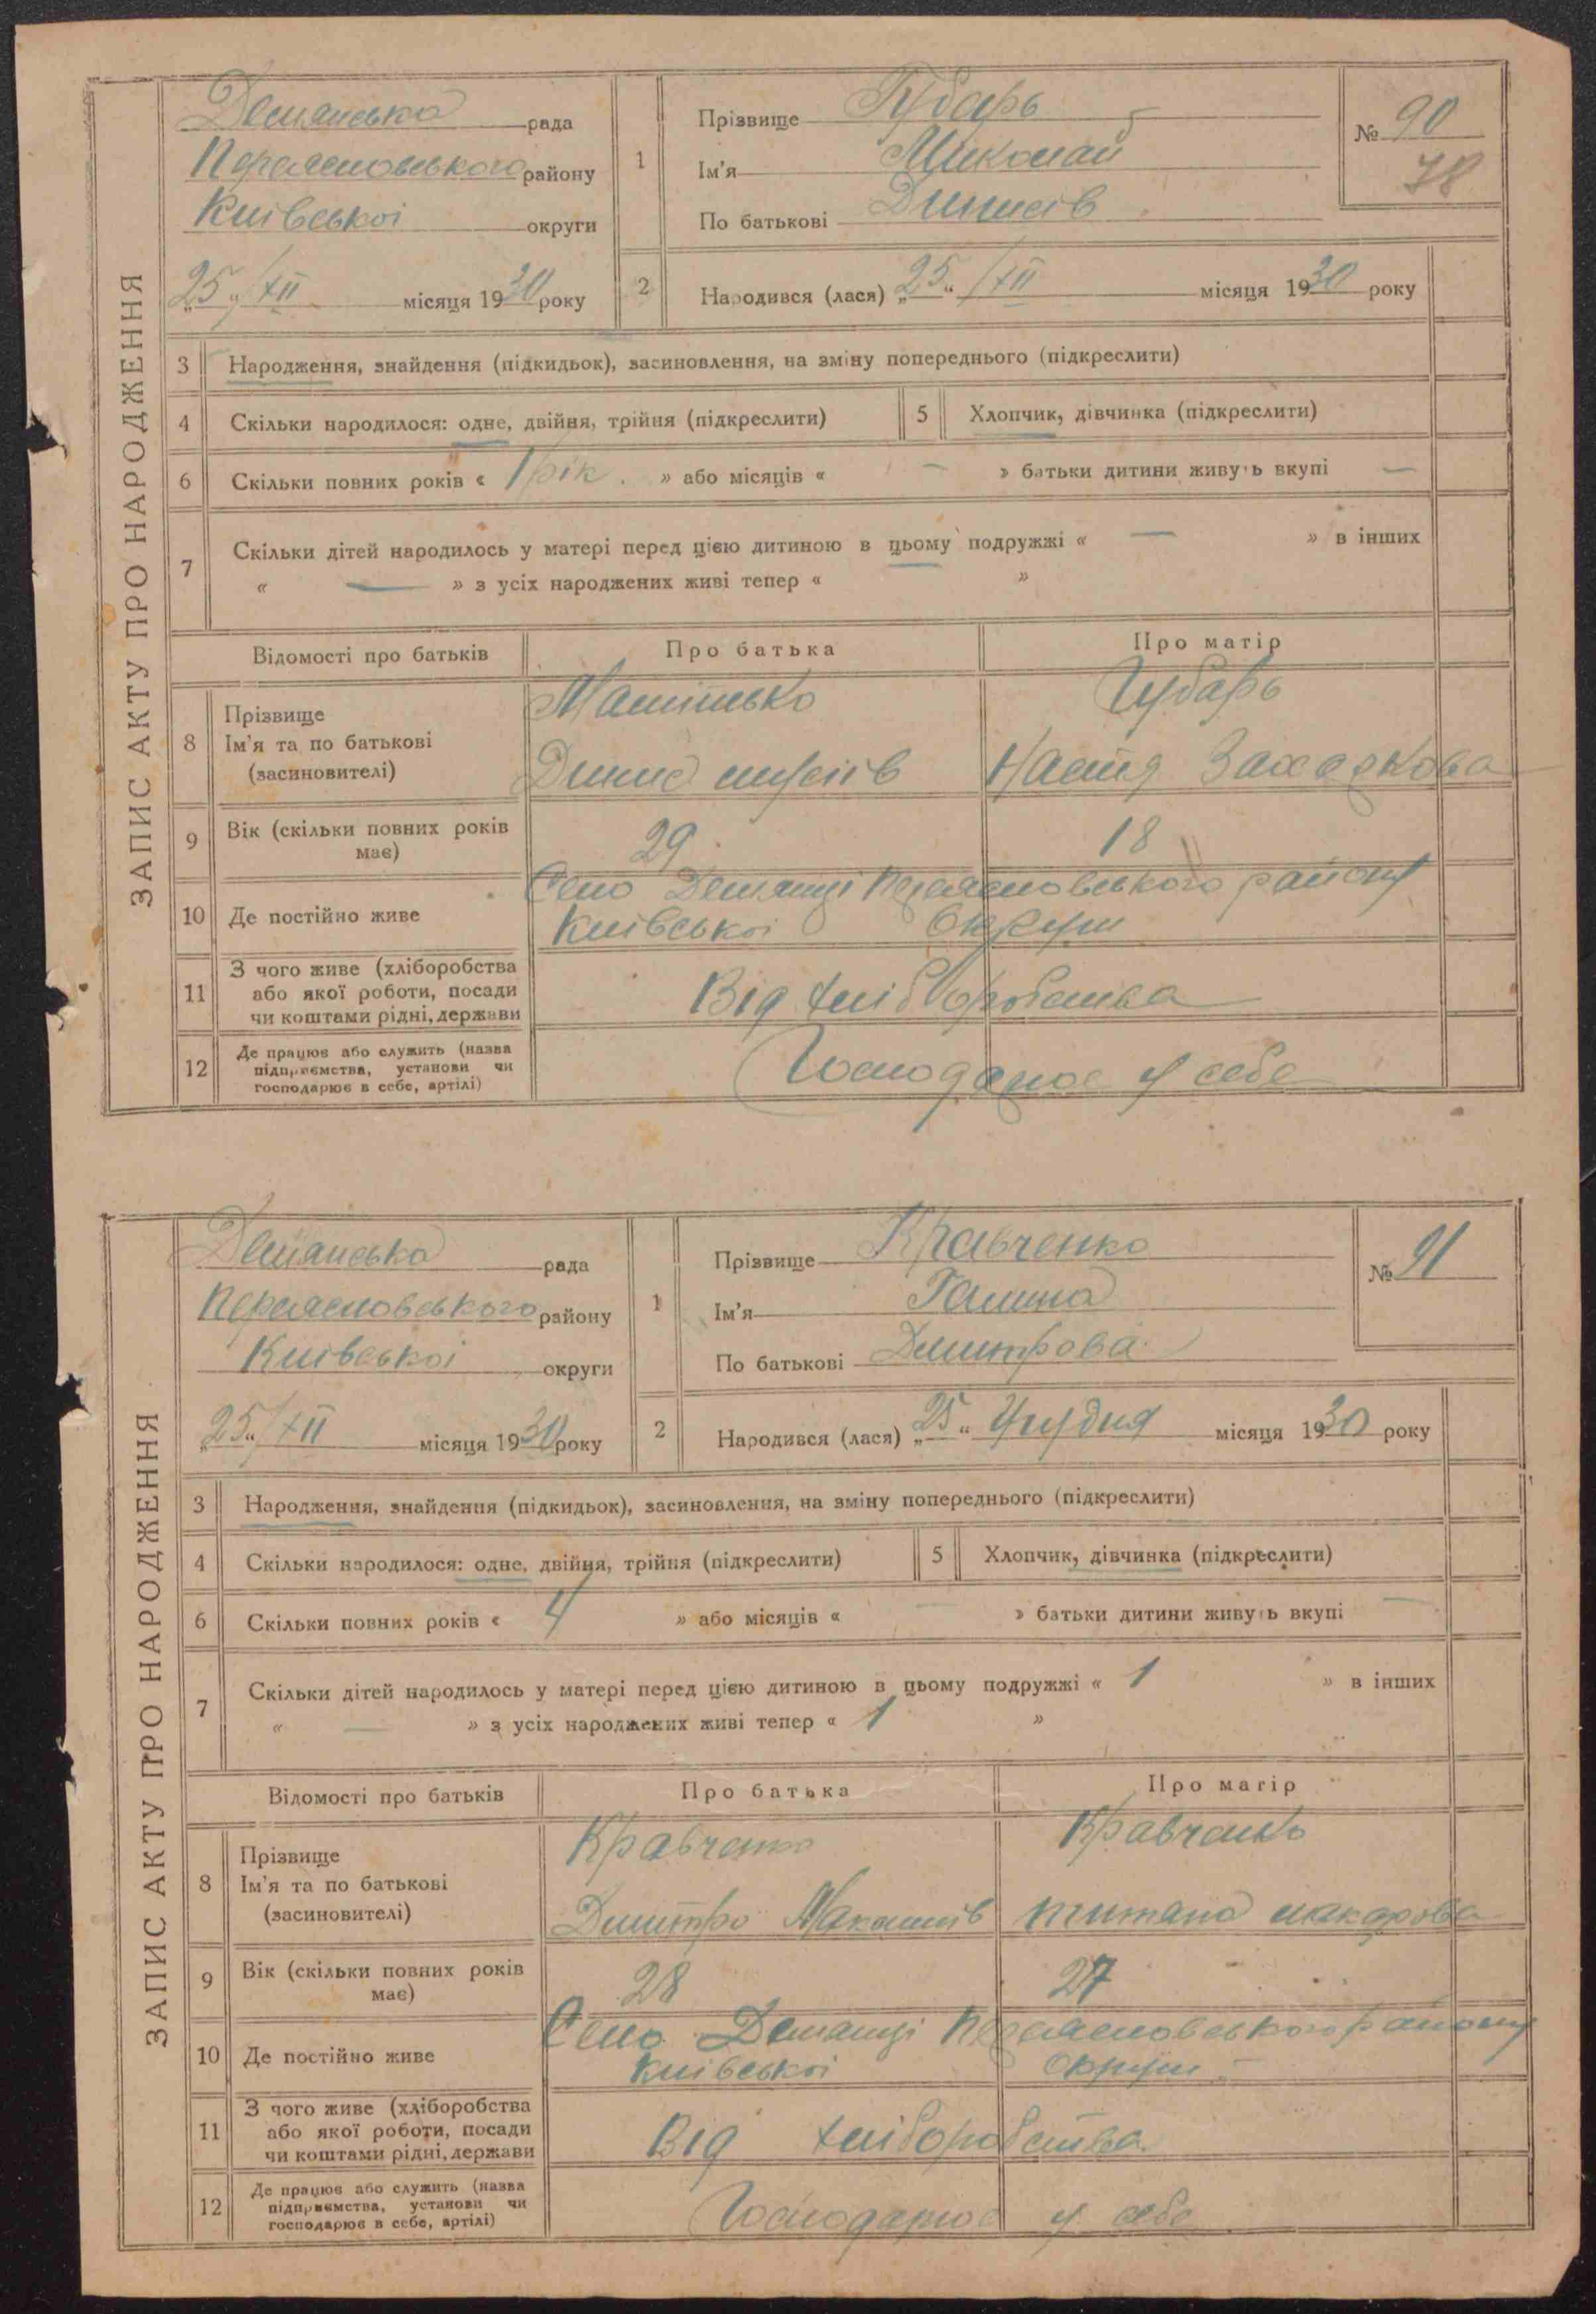 ЗАПИС АКТУ ПРО НАРОДЖЕННЯ
Демянська рада
Переяславського району
Київської округи
„25“ /XII місяця 1930 року
1 Прізвище Губарь
Ім'я Миколай
По батькові Динисів
№ 90
78
2 Народився (лася) „25“ /XII місяця 1930 року
3 Народження, знайдення (підкидьок), засиновлення, на зміну попереднього (підкреслити)
4 Скільки народилося: одне, двійня, трійня (підкреслити) 5 Хлопчик, дівчинка (підкреслити)
6 Скільки повних років « 1 рік. » або місяців « — » батьки дитини живуть вкупі —
7 Скільки дітей народилось у матері перед цією дитиною в цьому подружжі « — » в інших
« — » з усіх народжених живі тепер « »
Відомості про батьків Про батька Про матір
8 Прізвище
Ім'я та по батькові
(засиновителі)
Губарь
Динис Настя Захаркова
9 Вік (скільки повних років
має)
29 18
10 Де постійно живе
Село Демянці Переяславського району
Київської Округи
11 З чого живе (хліборобства
або якої роботи, посади
чи коштами рідні, держави
Від хліборобства
12 Де працює або служить (назва
підприємства, установи чи
господарює в себе, артілі)
Господарює у себе
ЗАПИС АКТУ ПРО НАРОДЖЕННЯ
Демянська рада
Переяславського району
Київської округи
„25“ /XII місяця 1930 року
1 Прізвище Кравченко
Ім'я Галина
По батькові Дмитрова
№ 91
2 Народився (лася) „25“ Грудня місяця 1930 року
3 Народження, знайдення (підкидьок), засиновлення, на зміну попереднього (підкреслити)
4 Скільки народилося: одне, двійня, трійня (підкреслити) 5 Хлопчик, дівчинка (підкреслити)
6 Скільки повних років « 4 » або місяців « — » батьки дитини живуть вкупі —
7 Скільки дітей народилось у матері перед цією дитиною в цьому подружжі « 1 » в інших
« — » з усіх народжених живі тепер « 1 »
Відомості про батьків Про батька Про матір
8 Прізвище
Ім'я та по батькові
(засиновителі)
Кравченко Кравченко
Дмитро титяна макарова
9 Вік (скільки повних років
має)
28 27
10 Де постійно живе
Село Демянці Переяславського району
Київської Округи —
11 З чого живе (хліборобства
або якої роботи, посади
чи коштами рідні, держави
Від хліборобства
12 Де працює або служить (назва
підприємства, установи чи
господарює в себе, артілі)
Господарює у себе